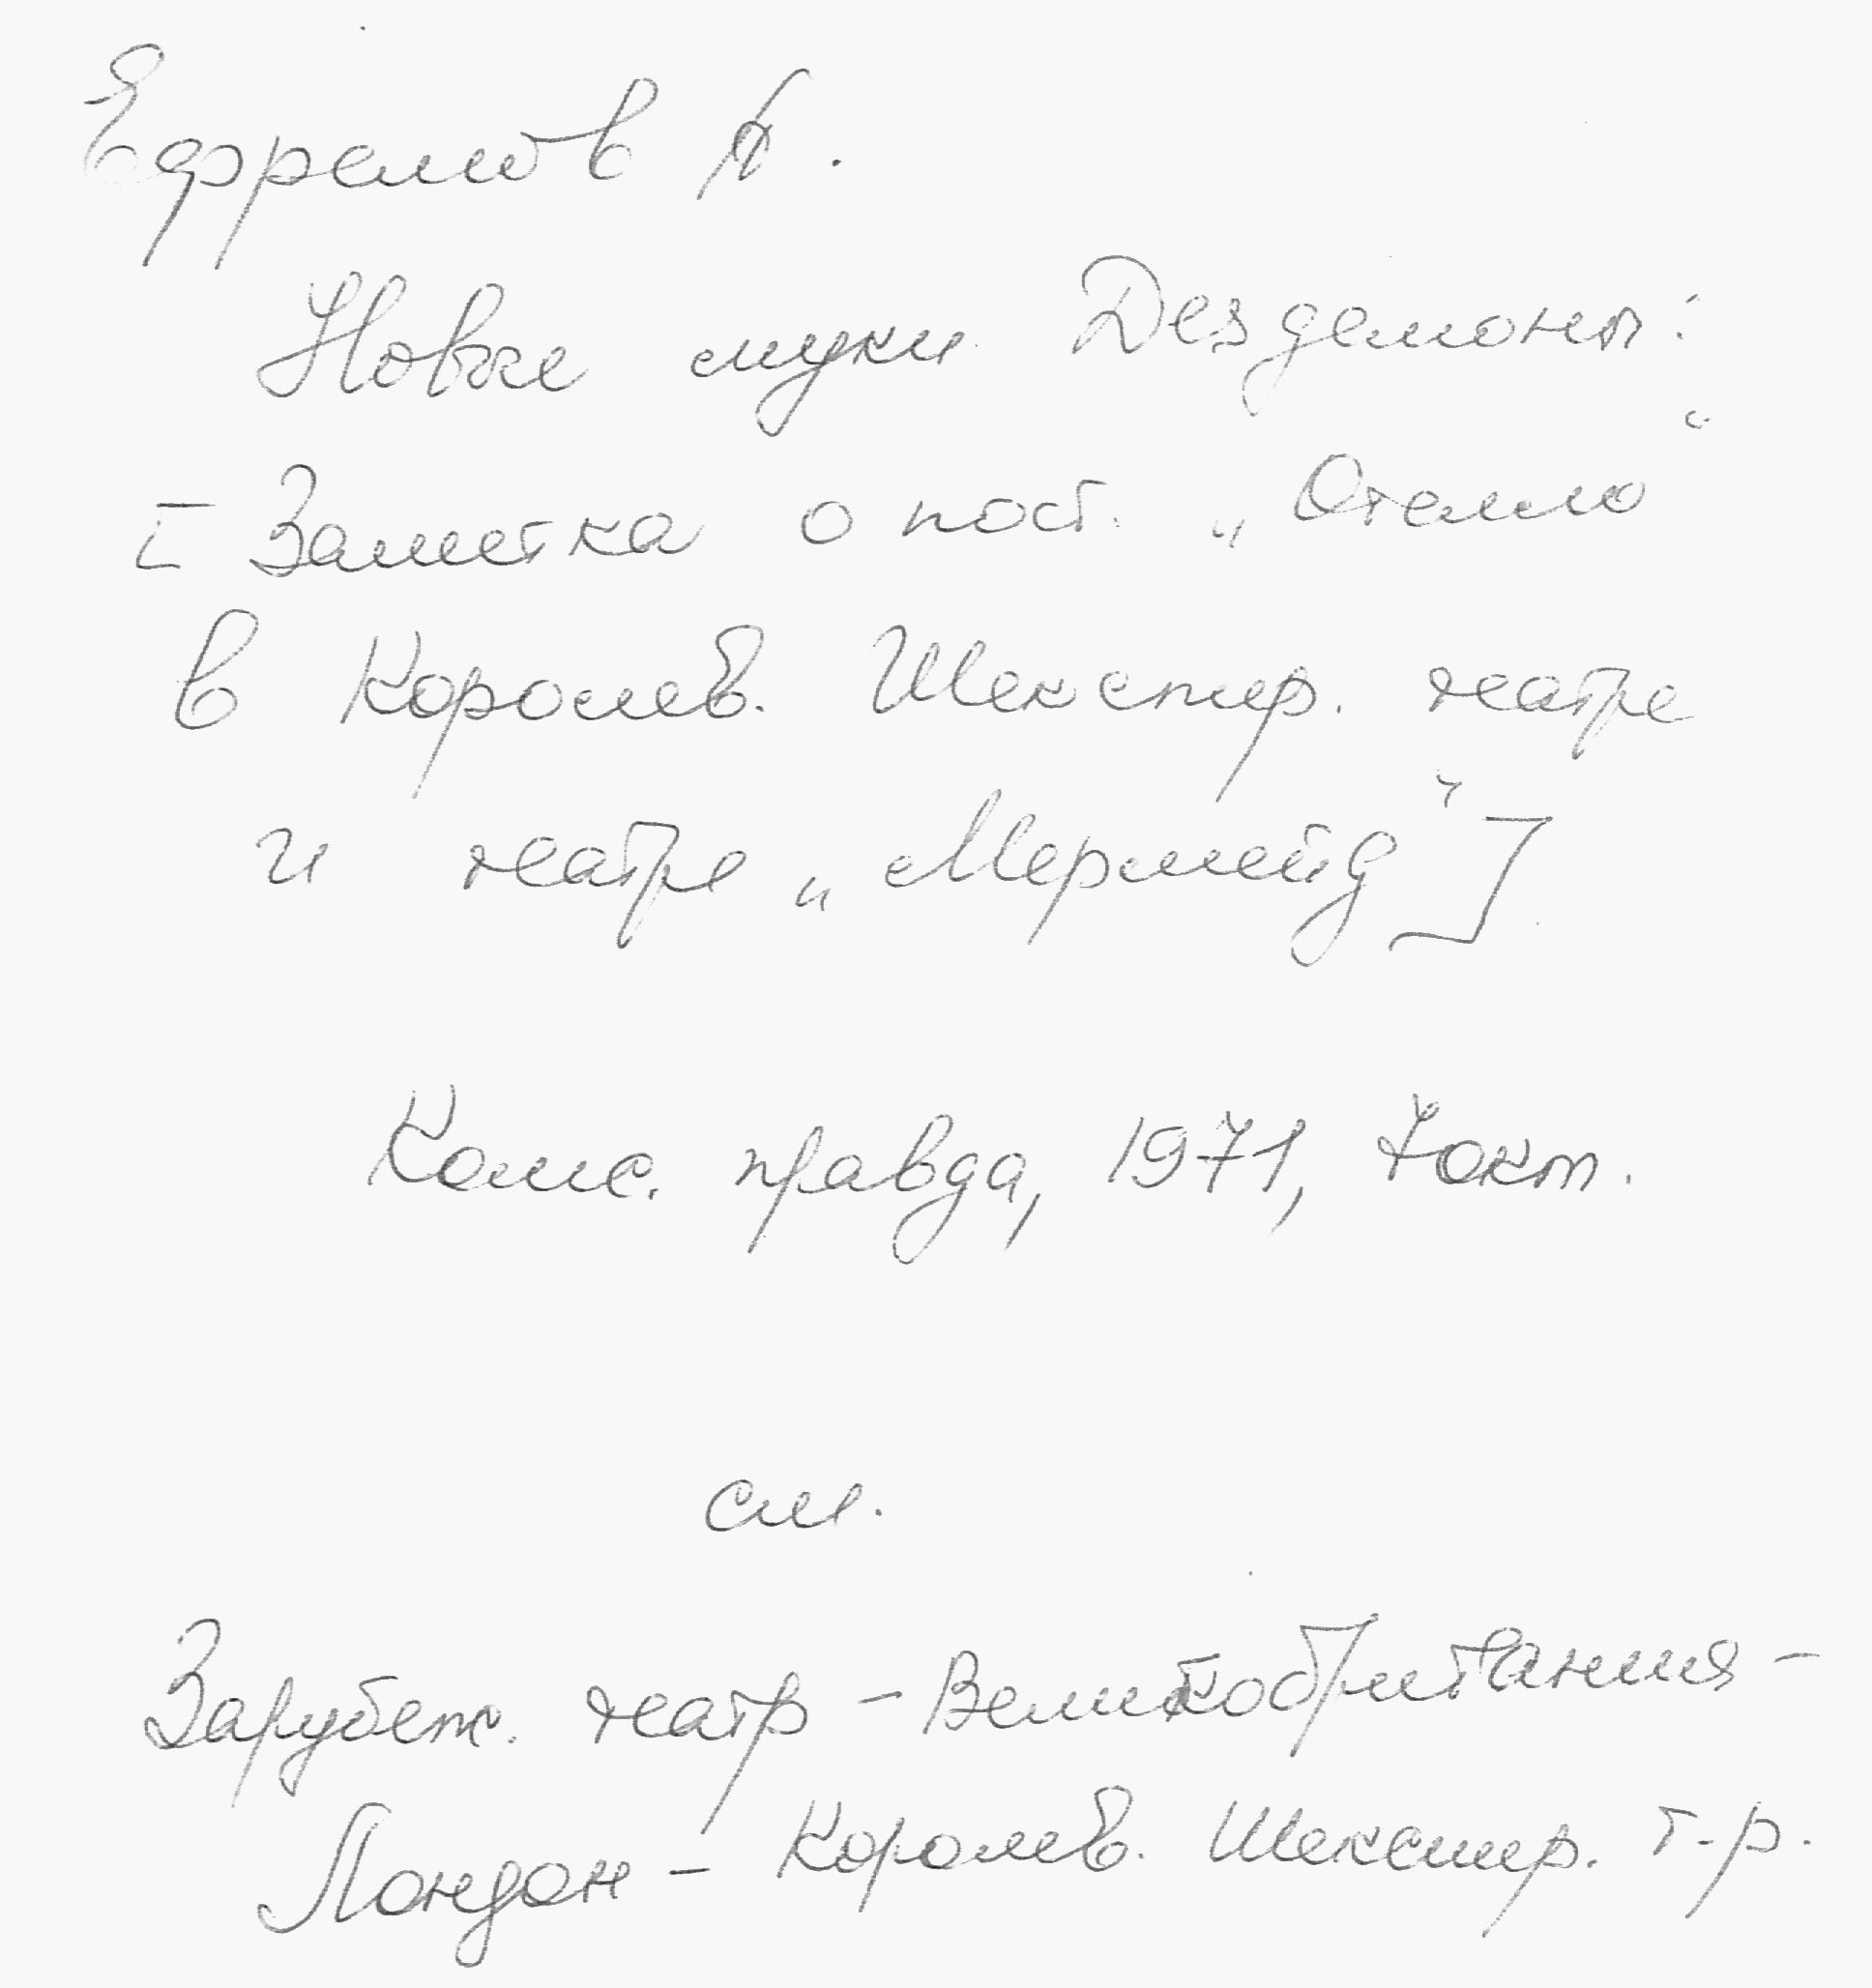 Ефремов А.
Новые муки Дездемоны:
[Заметка о пост. „Отелло“
в Королев. Шекспир. театре
и театре „Мермейд“]
Комс. правда, 1971, 7 окт.
см.
Зарубеж. театр – Великобритания –
Лондон – Королев. Шекспир. т-р.